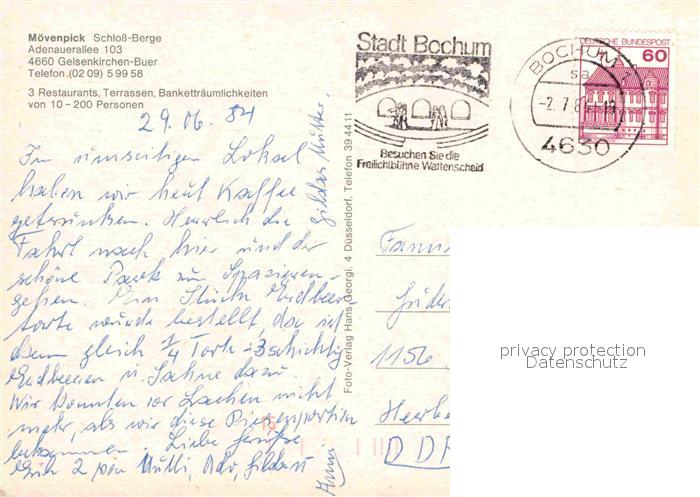 Mövenpick Schloß-Berge
Adenauerallee 103
4660 Gelsenkirchen-Buer
Telefon (02 09) 5 99 58
3 Restaurants, Terrassen, Banketträumlichkeiten
von 10-200 Personen
29.06.84
Im umseitigen Lokal
haben wir heut Kaffee
getrunken. Herrlich die
Fahrt nach hier und der
schöne Park zum Spazieren-
gehen. Ein Stück Erdbeer-
torte wurde bestellt, da ist
dann gleich 1/4 Torte 3schichtig
Erdbeeren u Sahne dazu
Wir konnten vor Lachen nicht
mehr, als wir diese Riesenportion
bekommen. Liebe Grüße
2 von Mutti,
Foto-Verlag Hans Georgi, 4 Düsseldorf, Telefon 39 44 11
Stadt Bochum
Besuchen Sie die
Freilichtbühne Wattenscheid
BOCHUM
sa
-2.7.84-19
4630
DEUTSCHE BUNDESPOST
60
1156
DDR
privacy protection
Datenschutz